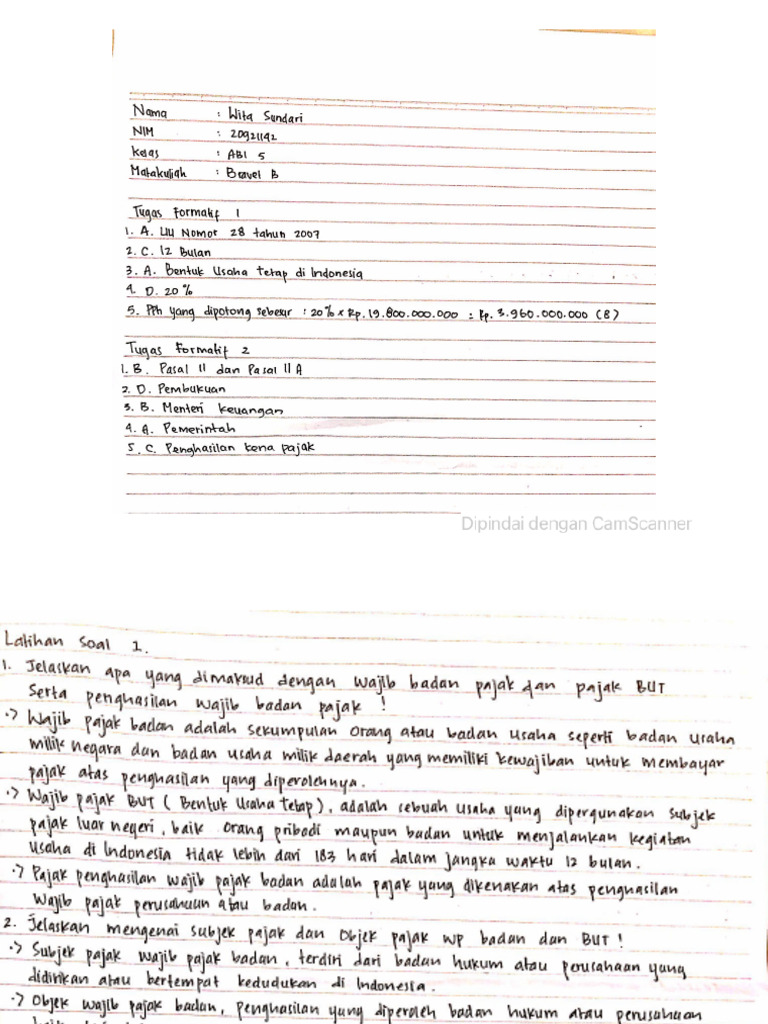 Nama : Wita Sundari
NIM : 20921142
Kelas : ABI 5
Matakuliah : Bravel B
Tugas Formatif 1
1. A. UU Nomor 28 tahun 2007
2. C. 12 Bulan
3. A. Bentuk Usaha tetap di Indonesia
4. D. 20%
5. PPh yang dipotong sebesar : 20% x Rp. 19.800.000.000 = Rp. 3.960.000.000 (B)
Tugas Formatif 2
1. B. Pasal 11 dan Pasal 11 A
2. D. Pembukuan
3. B. Menteri keuangan
4. A. Pemerintah
5. C. Penghasilan kena pajak
Dipindai dengan CamScanner
Latihan Soal 1.
1. Jelaskan apa yang dimaksud dengan wajib badan pajak dan pajak BUT
Serta penghasilan wajib badan pajak !
•> Wajib pajak badan adalah sekumpulan orang atau badan usaha seperti badan usaha
milik negara dan badan usaha milik daerah yang memiliki kewajiban untuk membayar
pajak atas penghasilan yang diperolehnya.
•> Wajib pajak BUT ( Bentuk Usaha Tetap ), adalah sebuah usaha yang dipergunakan subjek
pajak luar negeri, baik orang pribadi maupun badan untuk menjalankan kegiatan
usaha di Indonesia tidak lebih dari 183 hari dalam jangka waktu 12 bulan.
•> Pajak penghasilan wajib pajak badan adalah pajak yang dikenakan atas penghasilan
Wajib pajak perusahaan atau badan.
2. Jelaskan mengenai subjek pajak dan Objek pajak WP badan dan BUT !
•> Subjek pajak wajib pajak badan, terdiri dari badan hukum atau perusahaan yang
didirikan atau bertempat kedudukan di Indonesia.
•> Objek wajib pajak badan, penghasilan yang diperoleh badan hukum atau perusahaan